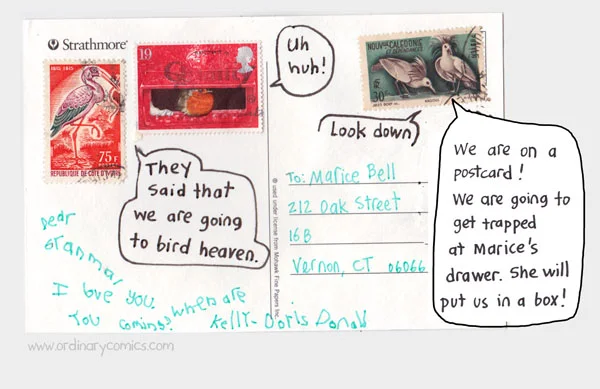 Strathmore®
19
Uh
huh!
NOUVLLE CALEDONIE
ET DEPENDANCES
30
Look down
75F
REPUBLIQUE DE CÔTE D'IVOIRE
They
said that
we are going
to bird heaven.
We are on a
postcard!
We are going to
get trapped
at Marice's
drawer. She will
put us in a box!
To: Marice Bell
212 Oak Street
16B
Vernon, CT 06066
© used under license from Mohawk Fine Papers Inc.
Dear
Granma,
I love you.
When are
you coming?
Kelly-Doris Donald
www.ordinarycomics.com